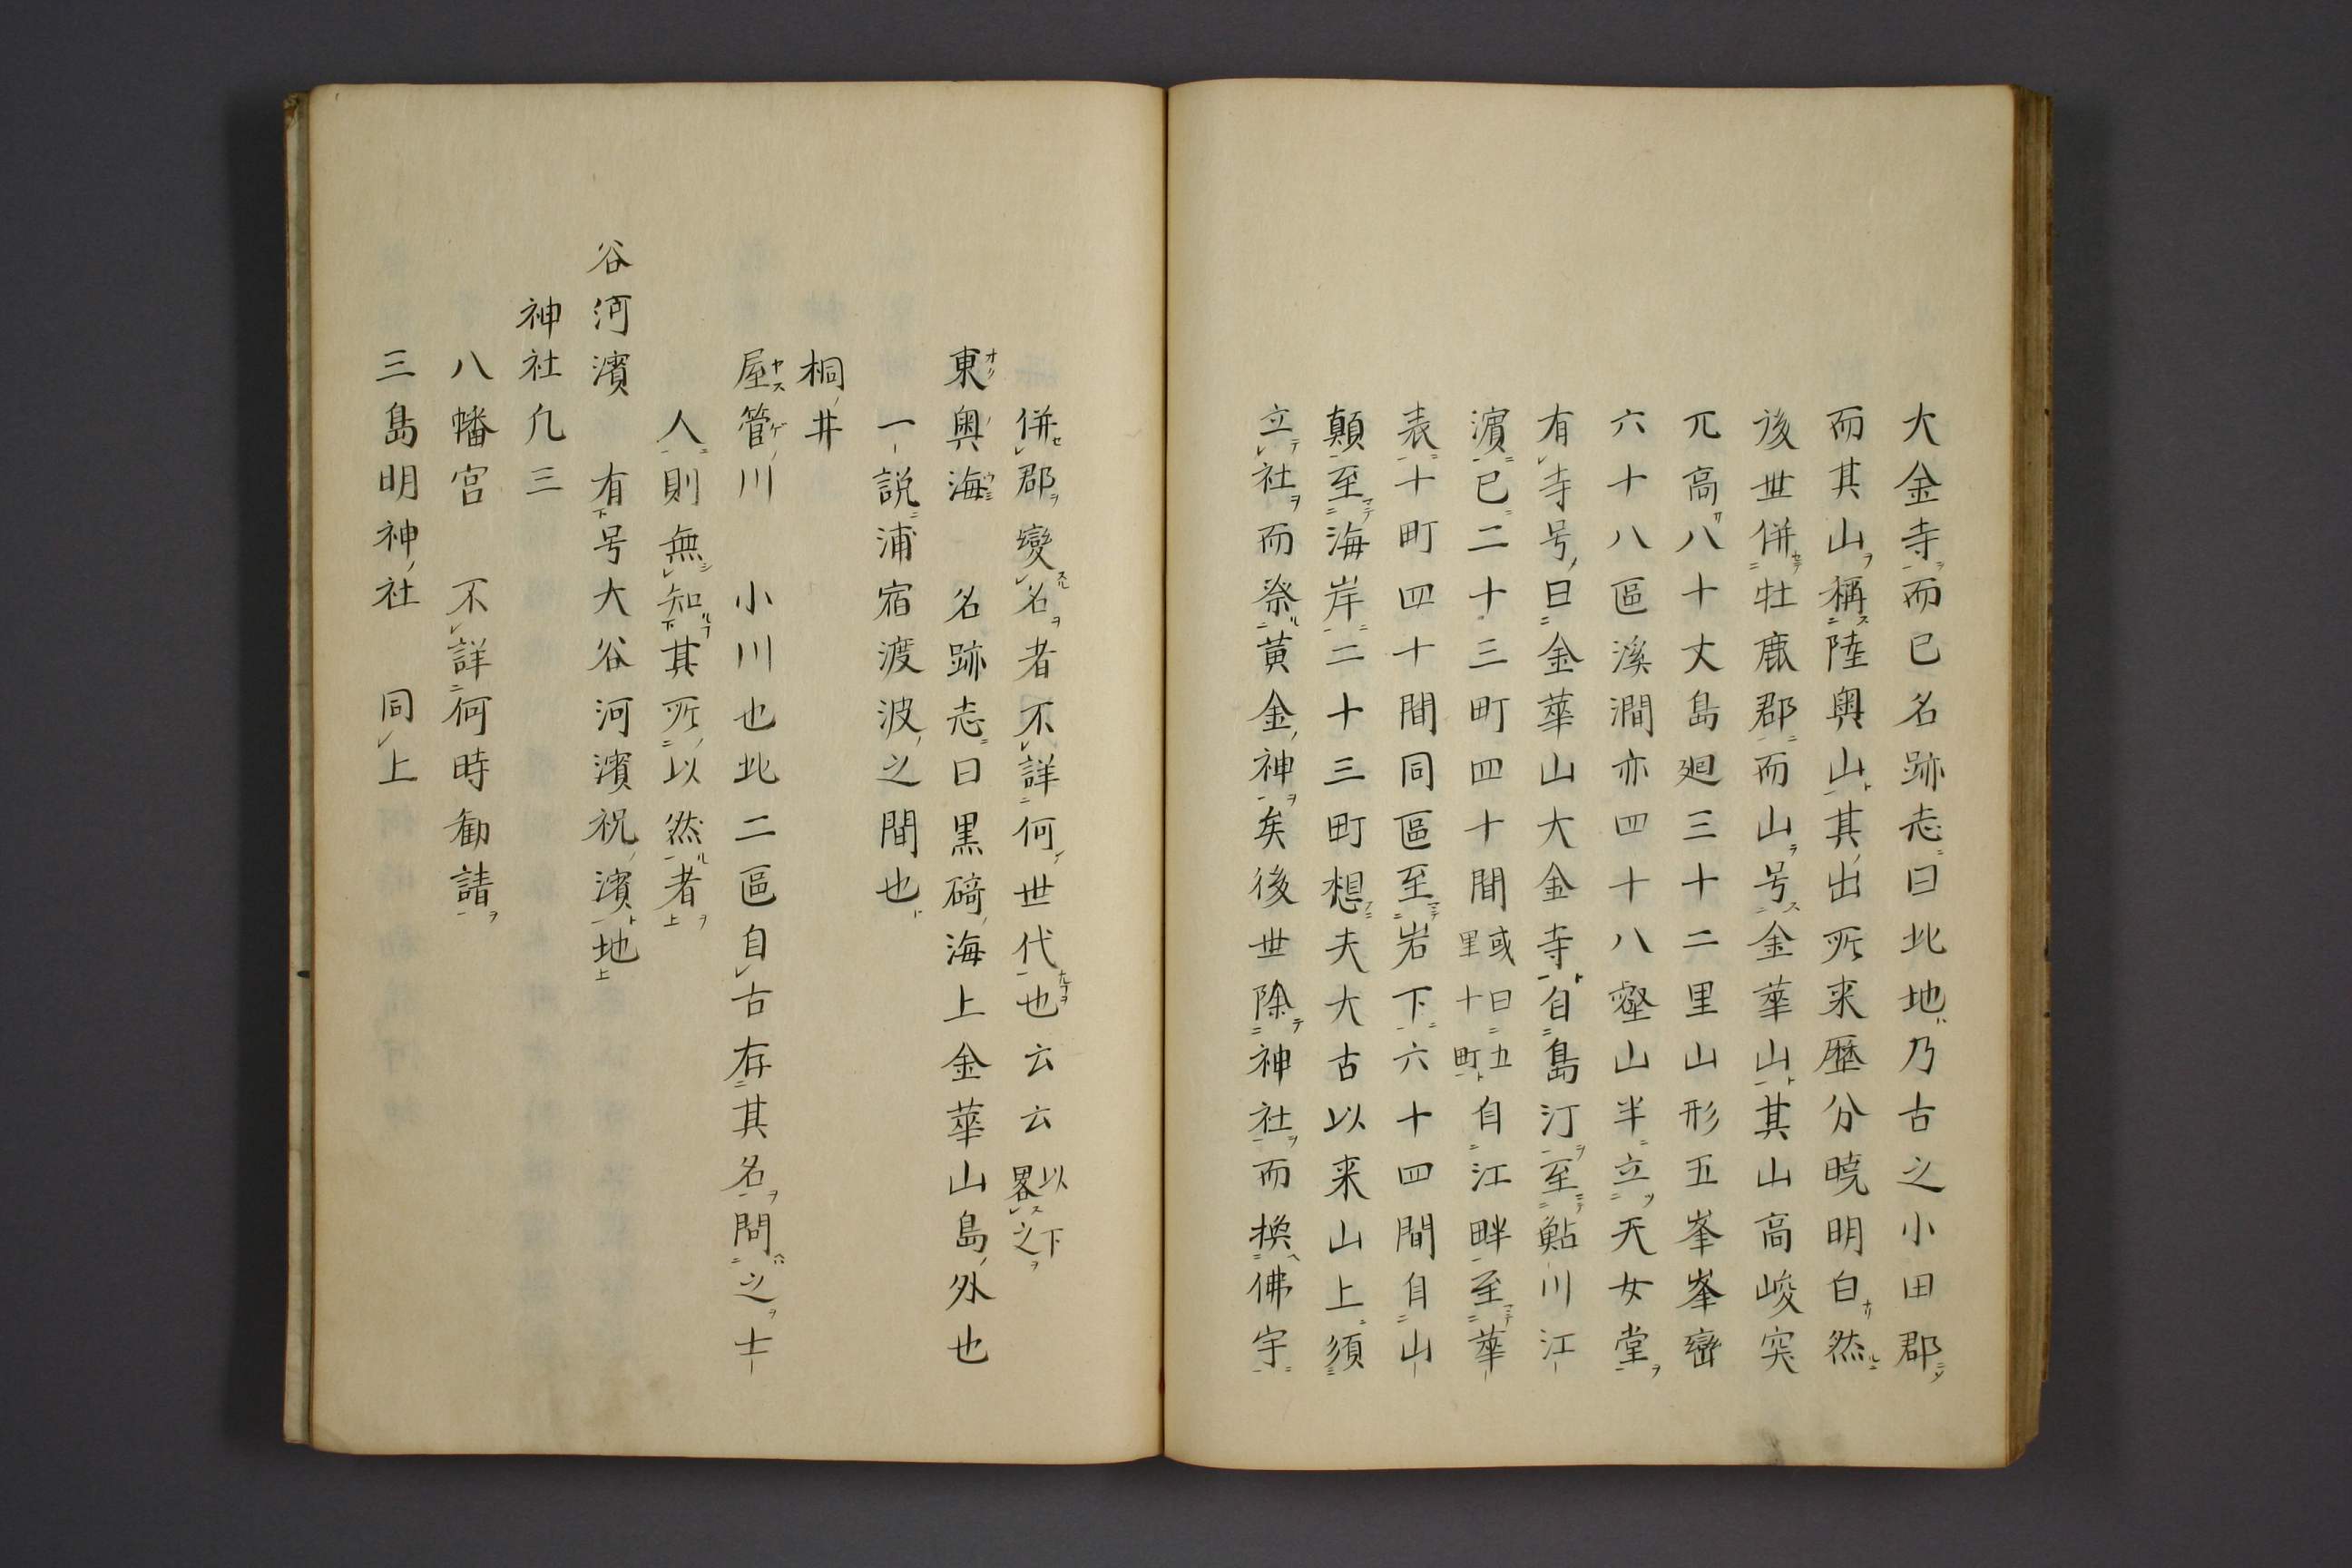 大金寺而已名跡志曰北地乃古之小田郡
而其山稱陸奥山其出所来歴分暁明白然
後世併牡鹿郡而山号金華山其山高峻突
兀高八十丈島廻三十二里山形五峯峯巒
六十八區溪澗亦四十八壑山半立天女堂
有寺号曰金華山大金寺自島汀至鮎川江
濱已二十三町四十間或曰五里十町自江畔至華
表十町四十間同區至岩下六十四間自山
顛至海岸二十三町想夫大古以来山上須
立社而祭黄金神矣後世除神社而換佛宇
併郡變名者不詳何世代也云云以下畧之
東奥海　名跡志曰黒碕海上金華山島外也
一説浦宿渡波之間也
桐井
屋管川　小川也北二區自古存其名問之士
人則無知其所以然者
谷河濱　有号大谷河濱祝濱地
神社凢三
八幡宮　不詳何時勧請
三島明神社　同上